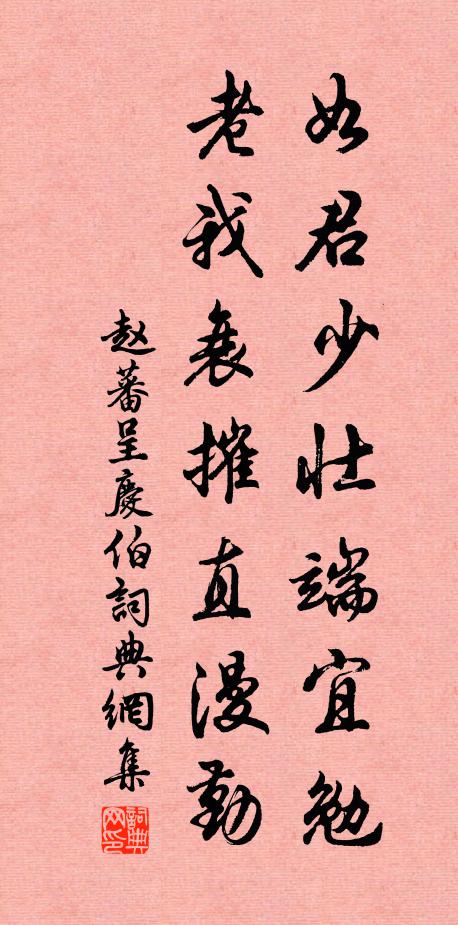 如君少壮端宜勉
老我衰摧直漫勤
赵蕃呈慶伯詞典網集
詞典网印